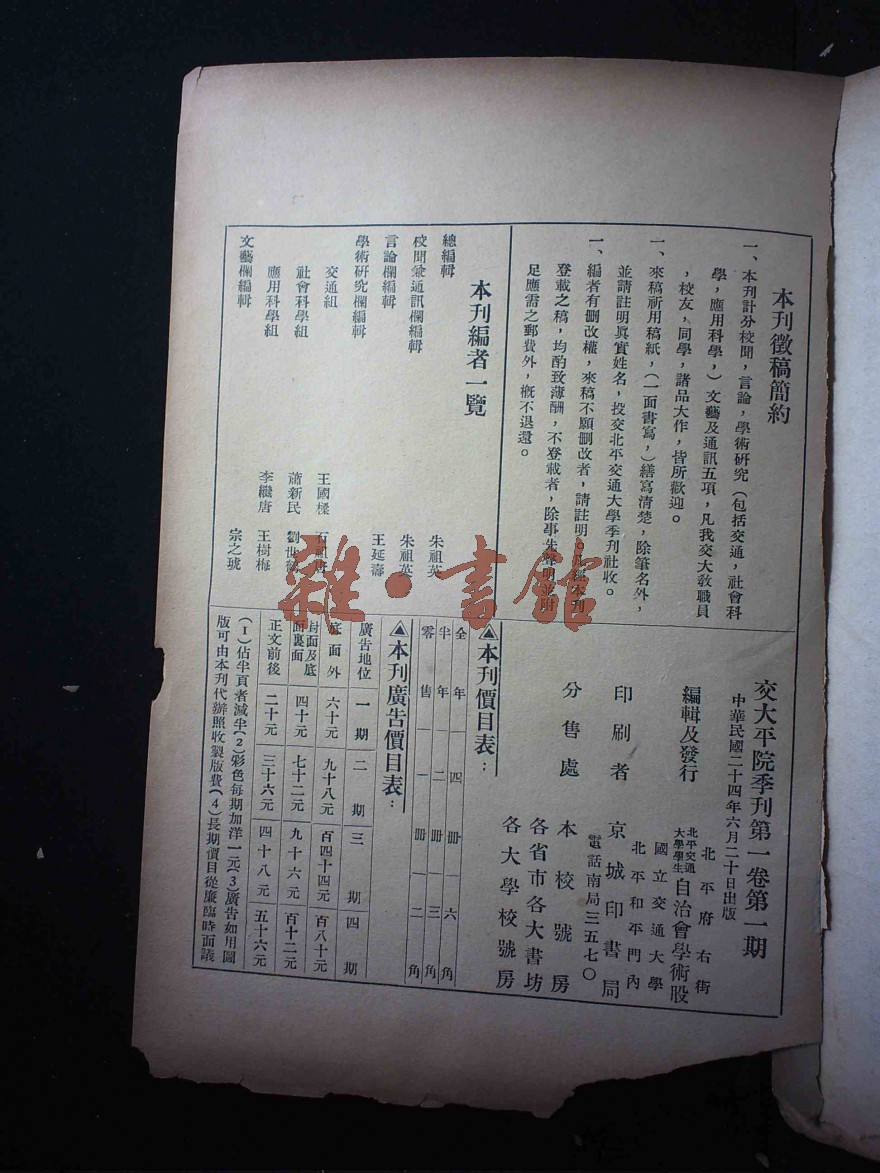 本刊徵稿簡約
一、本刊計分校聞，言論，學術研究（包括交通，社會科
學，應用科學，）文藝及通訊五項，凡我交大教職員
，校友，同學，諸品大作，皆所歡迎。
一、來稿祈用稿紙，（一面書寫，）繕寫清楚，除筆名外，
並請註明眞實姓名，投交北平交通大學季刊社收。
一、編者有刪改權，來稿不願刪改者，請註明。凡經本刊
登載之稿，均酌致薄酬，不登載者，除事先聲明並附
足應需之郵費外，概不退還。
本刊編者一覽
總編輯 朱祖英
校聞兼通訊欄編輯 朱祖英
言論欄編輯 王延壽
學術研究欄編輯
交通組 王國樑 石
社會科學組 蕭新民 劉世
應用科學組 李繼唐 王樹梅
文藝欄編輯 宗之琥
交大平院季刊第一卷第一期
中華民國二十四年六月二十日出版
編輯及發行 北平交通大學學生自治會學術股
北平府右街
國立交通大學
印刷者 京城印書局
北平和平門內
電話南局三五七〇
分售處 本校號房
各省市各大書坊
各大學校號房
▲本刊價目表：
全年 一四册 一六角
半年 一二册 三角
零售 一册 二角
▲本刊廣告價目表：
廣告地位 一期 二期 三期 四期
底面外 六十元 九十八元 百四十四元 百八十元
封面及底面裏面 四十元 七十二元 九十六元 百十二元
正文前後 二十元 三十六元 四十八元 五十六元
(1)佔半頁者減半(2)彩色每期加洋一元(3)廣告如用圖
版可由本刊代辦照收製版費(4)長期價目從廉臨時面議
雜·書館